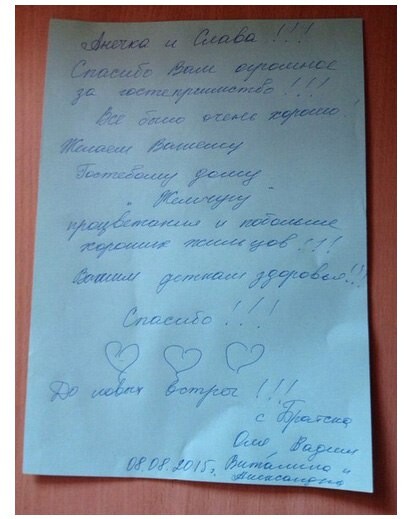 Анечка и Слава!!!
Спасибо Вам огромное
за гостеприимство!!!
Все было очень хорошо!
Желаем Вашему
Гостевому дому
"Жемчугу"
процветания и побольше
хороших жильцов!!!
Вашим деткам здоровья!!!
Спасибо!!!
До новых встреч!!!
с Братска
Оля Вадим
08.08.2015г. Виталина и
Александра